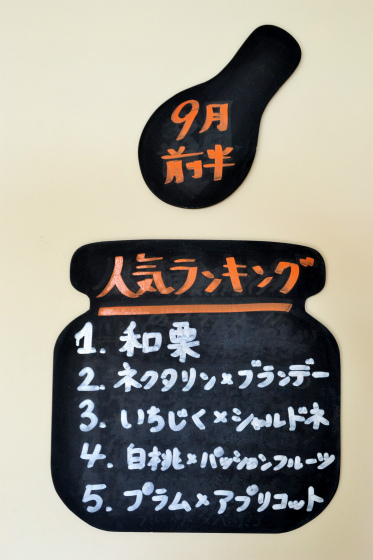 9月
前半
人気ランキング
1. 和栗
2. ネクタリン×ブランデー
3. いちじく×シャルドネ
4. 白桃×パッションフルーツ
5. プラム×アプリコット